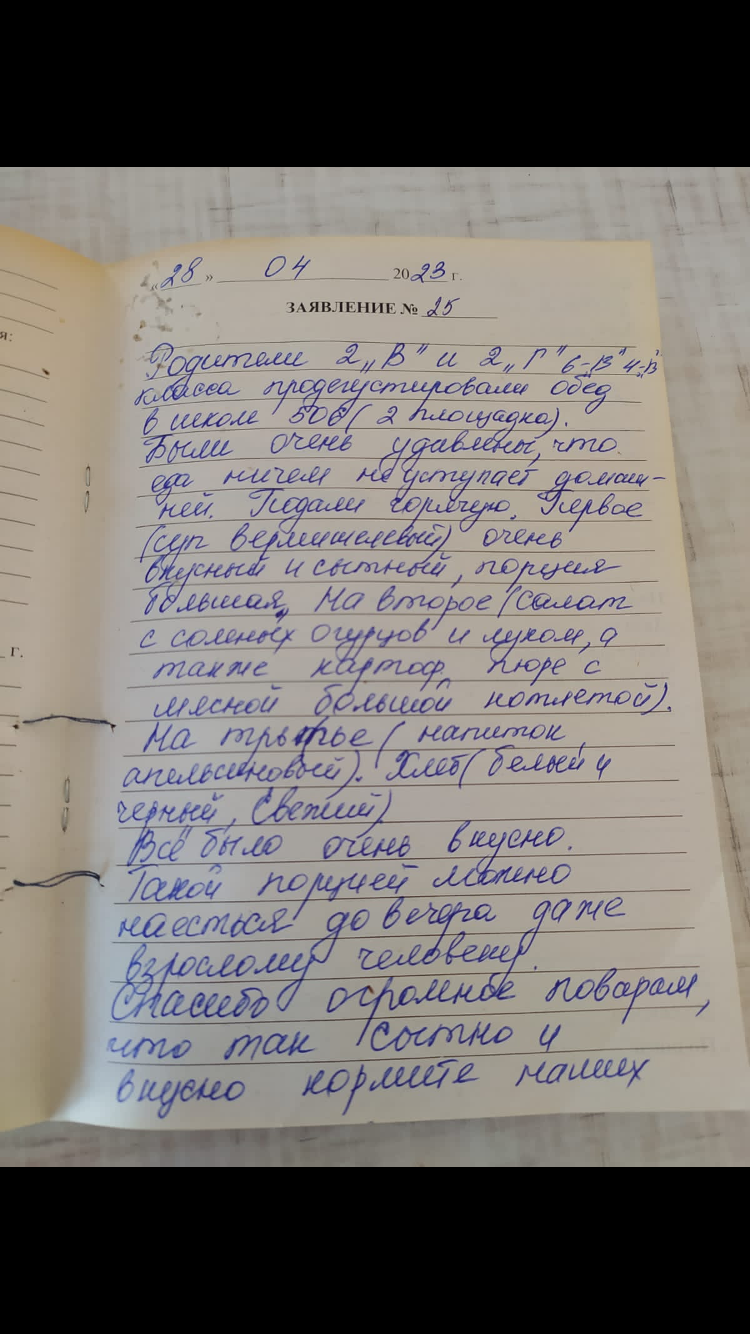 я:
г.
« 28 » 04 2023 г.
ЗАЯВЛЕНИЕ № 25
Родители 2 „В" и 2 „Г" 6 „В" 4 „В"
класса продегустировали обед
в школ 506 ( 2 площадка).
Были очень удавлены, что
еда ничем не уступает домаш-
ней. Подали горячую. Первое
(суп вермишелевый) очень
вкусный и сытный, порция
большая. На второе (салат
с соленых огурцов и луком, а
также картоф. пюре с
мясной большой котлетой).
На третье ( напиток
апельсиновый). Хлеб ( белый и
черный, свежий)
Всё было очень вкусно.
Такой порцией можно
наесться до вечера даже
взрослому человеку.
Спасибо огромное поварам,
что так сытно и
вкусно кормите наших